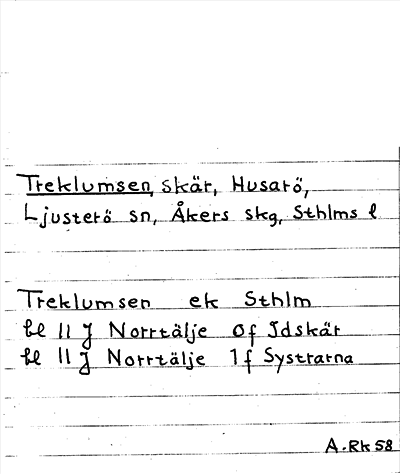 Treklumsen, skär, Husarö,
Ljusterö sn, Åkers skg, Sthlms l
Treklumsen ek Sthlm
be 11 J Norrtälje 0f Idskär
be 11 J Norrtälje 1f Systrarna
A.Rk 58